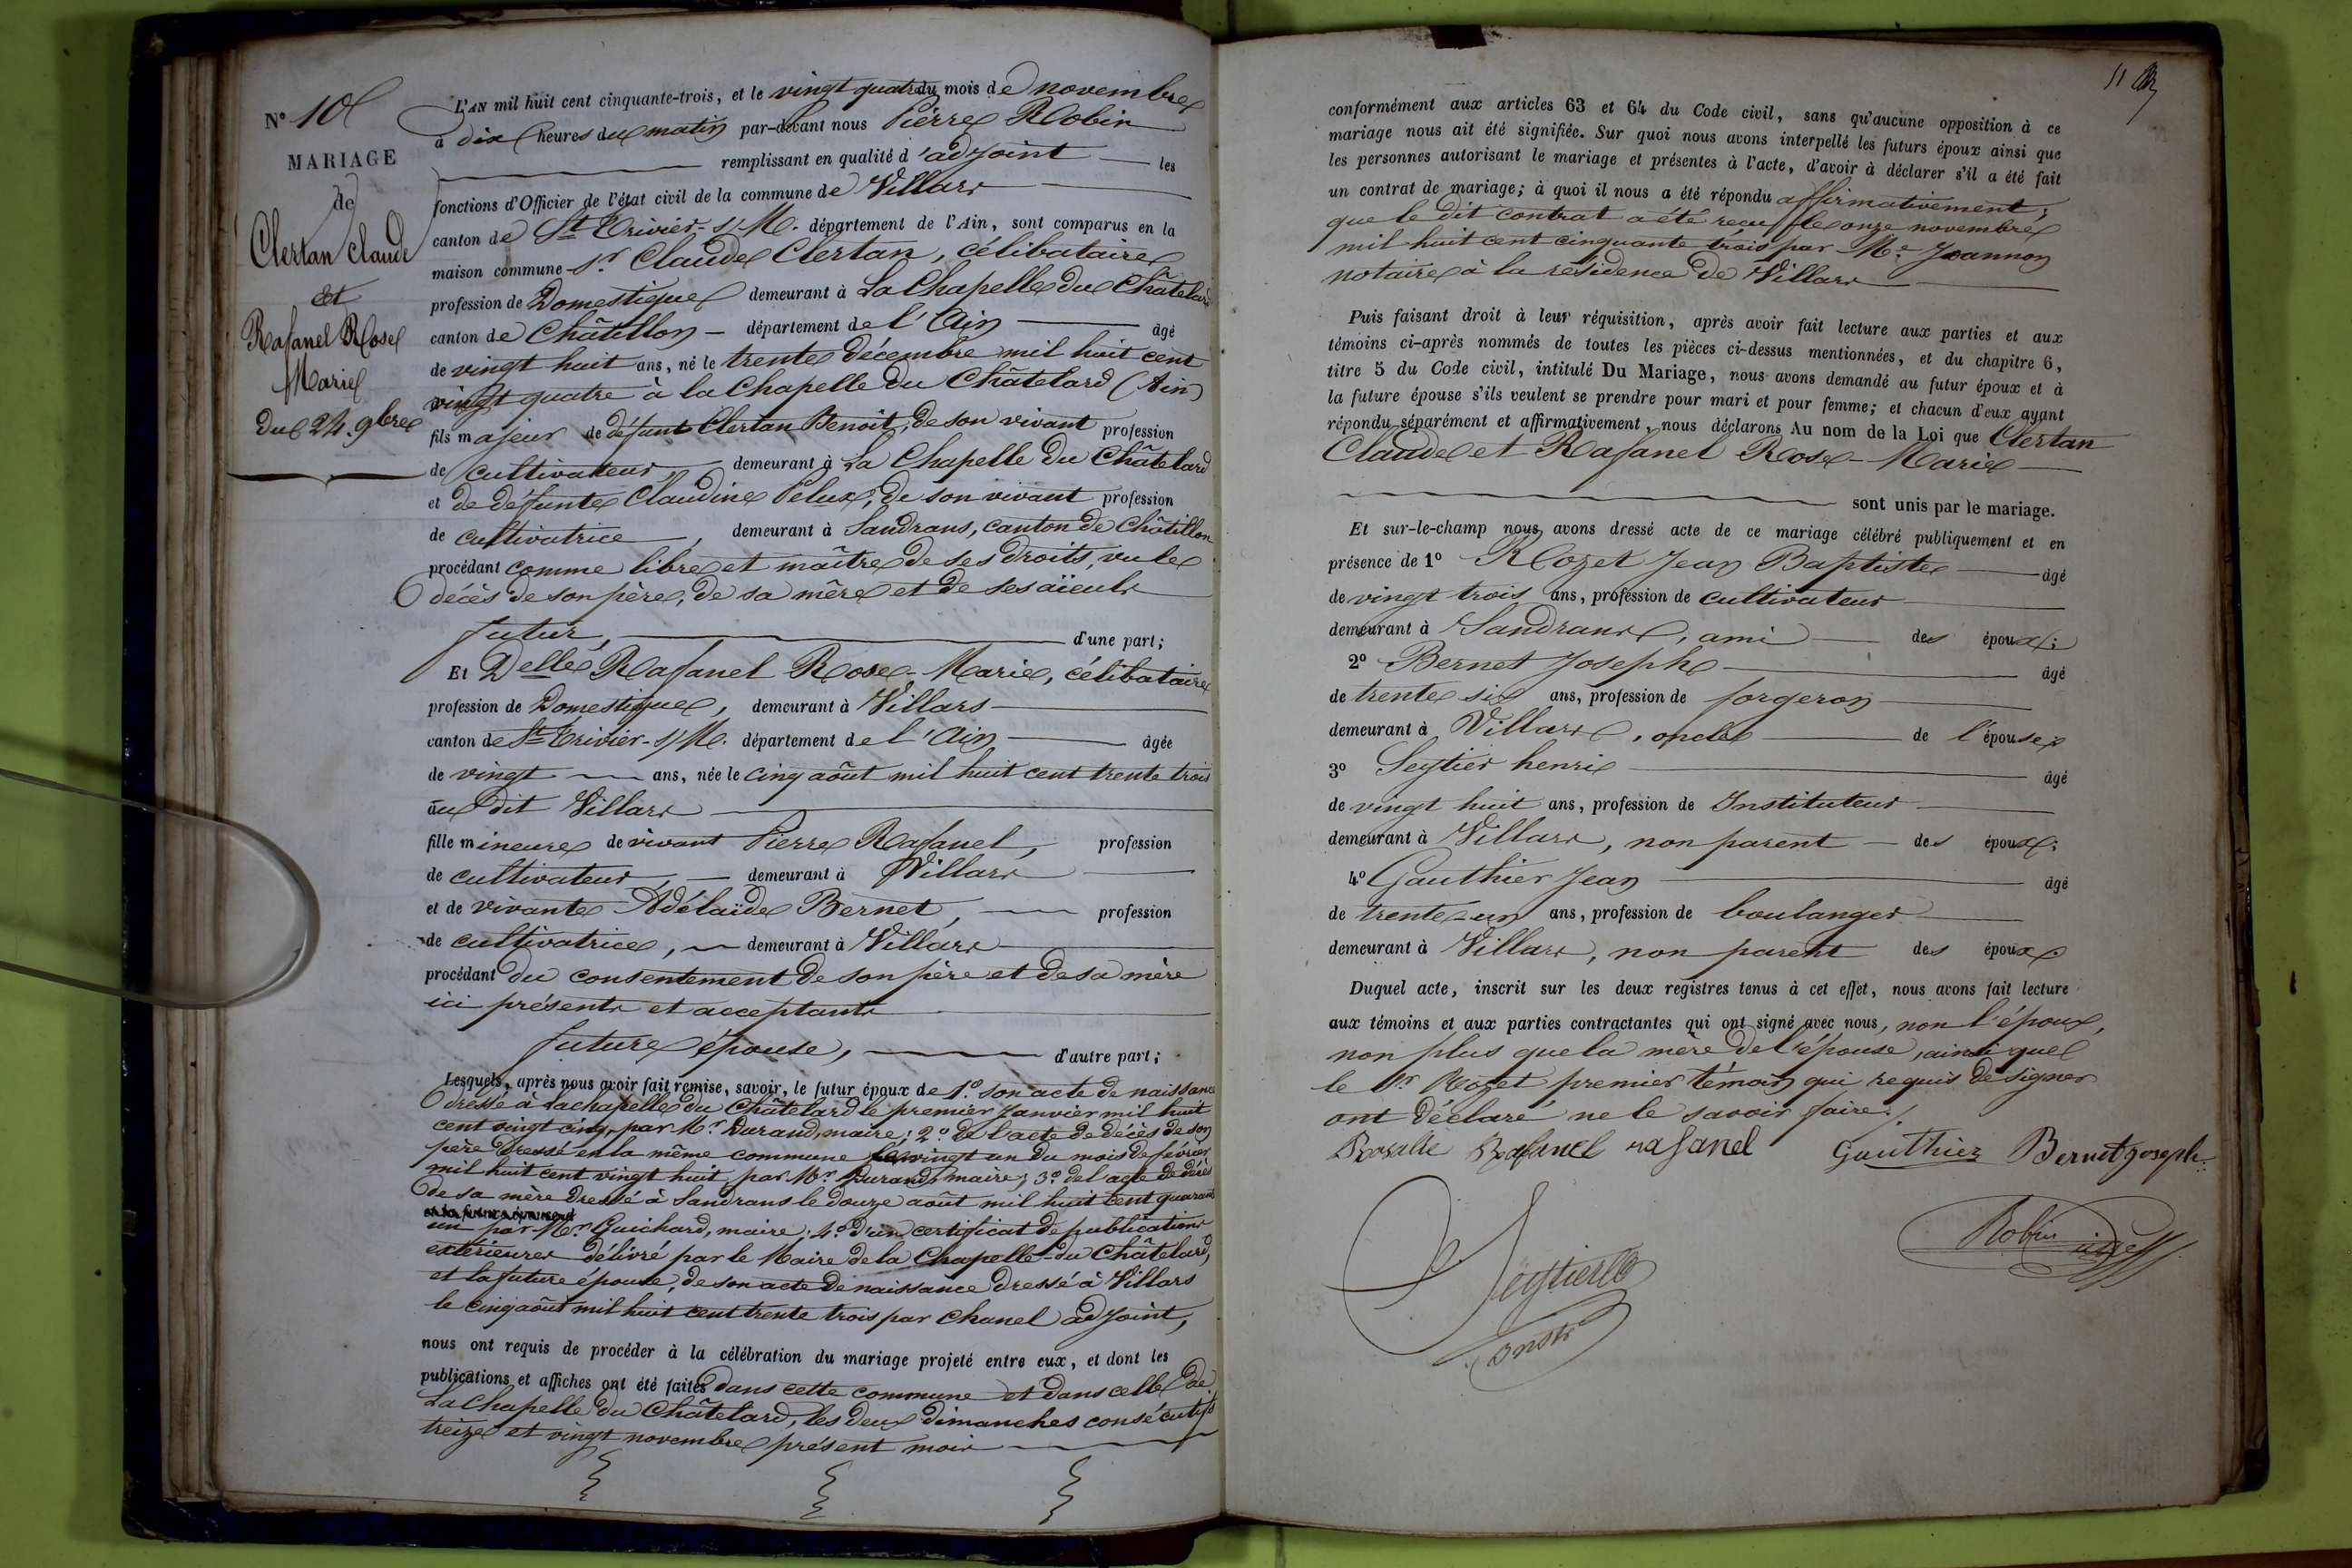 N° 10
MARIAGE
de
Clertan Claude
et
Rafanel Rose
Marie
du 24. 9bre
L'AN mil huit cent cinquante-trois, et le vingt quatre du mois de novembre
à dix heures du matin par-devant nous Pierre Robin
remplissant en qualité d'adjoint les
fonctions d'Officier de l'état civil de la commune de Villars
canton de St Trivier-s/M. département de l'Ain, sont comparus en la
maison commune Sr Claude Clertan, célibataire
profession de Domestique demeurant à La Chapelle du Châtelard
canton de Châtillon département de l'Ain âgé
de vingt huit ans, né le trente décembre mil huit cent
vingt quatre à la Chapelle du Châtelard (Ain)
fils majeur de défunt Clertan Benoit, de son vivant profession
de cultivateur demeurant à La Chapelle du Châtelard
et de défunte Claudine Pelux, de son vivant profession
de cultivatrice, demeurant à Sandrans, canton de Châtillon
procédant comme libre et maître de ses droits, vu le
décès de son père, de sa mère et de ses aïeuls
futur, d'une part;
Et Delle Rafanel Rose-Marie, célibataire
profession de Domestique, demeurant à Villars
canton de St Trivier-s/M. département de l'Ain âgée
de vingt ans, née le cinq août mil huit cent trente trois
au dit Villars
fille mineure de vivant Pierre Rafanel, profession
de cultivateur, demeurant à Villars
et de vivante Adélaïde Bernet, profession
de cultivatrice, demeurant à Villars
procédant du consentement de son père et de sa mère
ici présents et acceptants
future épouse, d'autre part;
Lesquels, après nous avoir fait remise, savoir, le futur époux de 1° son acte de naissance
dressé à Lachapelle du Châtelard le premier Janvier mil huit
cent vingt cinq, par Mr Durand, maire; 2° de l'acte de décès de son
père dressé en la même commune le vingt un du mois de février
mil huit cent vingt huit, par Mr Durand, maire; 3° de l'acte de décès
de sa mère dressé à Sandrans le douze août mil huit cent quarante
un par Mr Guichard, maire; 4° d'un certificat de publications
extérieures délivré par le Maire de la Chapelle-du Châtelard,
et la future épouse, de son acte de naissance dressé à Villars
le cinq août mil huit cent trente trois par Chanel adjoint,
nous ont requis de procéder à la célébration du mariage projeté entre eux, et dont les
publications et affiches ont été faites dans cette commune et dans celle de
La Chapelle du Châtelard, les deux dimanches consécutifs
treize et vingt novembre présent mois
11
conformément aux articles 63 et 64 du Code civil, sans qu'aucune opposition à ce
mariage nous ait été signifiée. Sur quoi nous avons interpellé les futurs époux ainsi que
les personnes autorisant le mariage et présentes à l'acte, d'avoir à déclarer s'il a été fait
un contrat de mariage; à quoi il nous a été répondu affirmativement;
que le dit contrat a été reçu le onze novembre
mil huit cent cinquante trois par Me Joannon
notaire à la résidence de Villars
Puis faisant droit à leur réquisition, après avoir fait lecture aux parties et aux
témoins ci-après nommés de toutes les pièces ci-dessus mentionnées, et du chapitre 6,
titre 5 du Code civil, intitulé Du Mariage, nous avons demandé au futur époux et à
la future épouse s'ils veulent se prendre pour mari et pour femme; et chacun d'eux ayant
répondu séparément et affirmativement, nous déclarons Au nom de la Loi que Clertan
Claude et Rafanel Rose-Marie
sont unis par le mariage.
Et sur-le-champ nous avons dressé acte de ce mariage célébré publiquement et en
présence de 1° Rozet Jean Baptiste âgé
de vingt trois ans, profession de cultivateur
demeurant à Sandrans, ami des époux;
2° Bernet Joseph âgé
de trente six ans, profession de forgeron
demeurant à Villars, oncle de l'épouse;
3° Seytier henri âgé
de vingt huit ans, profession de Instituteur
demeurant à Villars, non parent des époux;
4° Gauthier Jean âgé
de trente-un ans, profession de boulanger
demeurant à Villars, non parent des époux
Duquel acte, inscrit sur les deux registres tenus à cet effet, nous avons fait lecture
aux témoins et aux parties contractantes qui ont signé avec nous, non l'époux,
non plus que la mère de l'épouse, ainsi que
le Sr Rozet premier témoin qui requis de signer
ont déclaré ne le savoir faire./.
Rosalie Rafanel rafanel Gauthier Bernet Joseph
Seytier
Instr
Robin